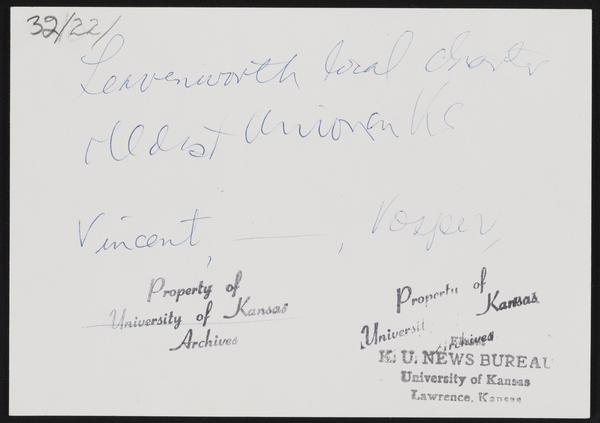 32/22/
Leavenworth local charter
Oldest Union in Ks
Vincent, ———, Vosper,
Property of
University of Kansas
Archives
Property of
Universit Kansas
Archives
K. U. NEWS BUREAU
University of Kansas
Lawrence, Kansas